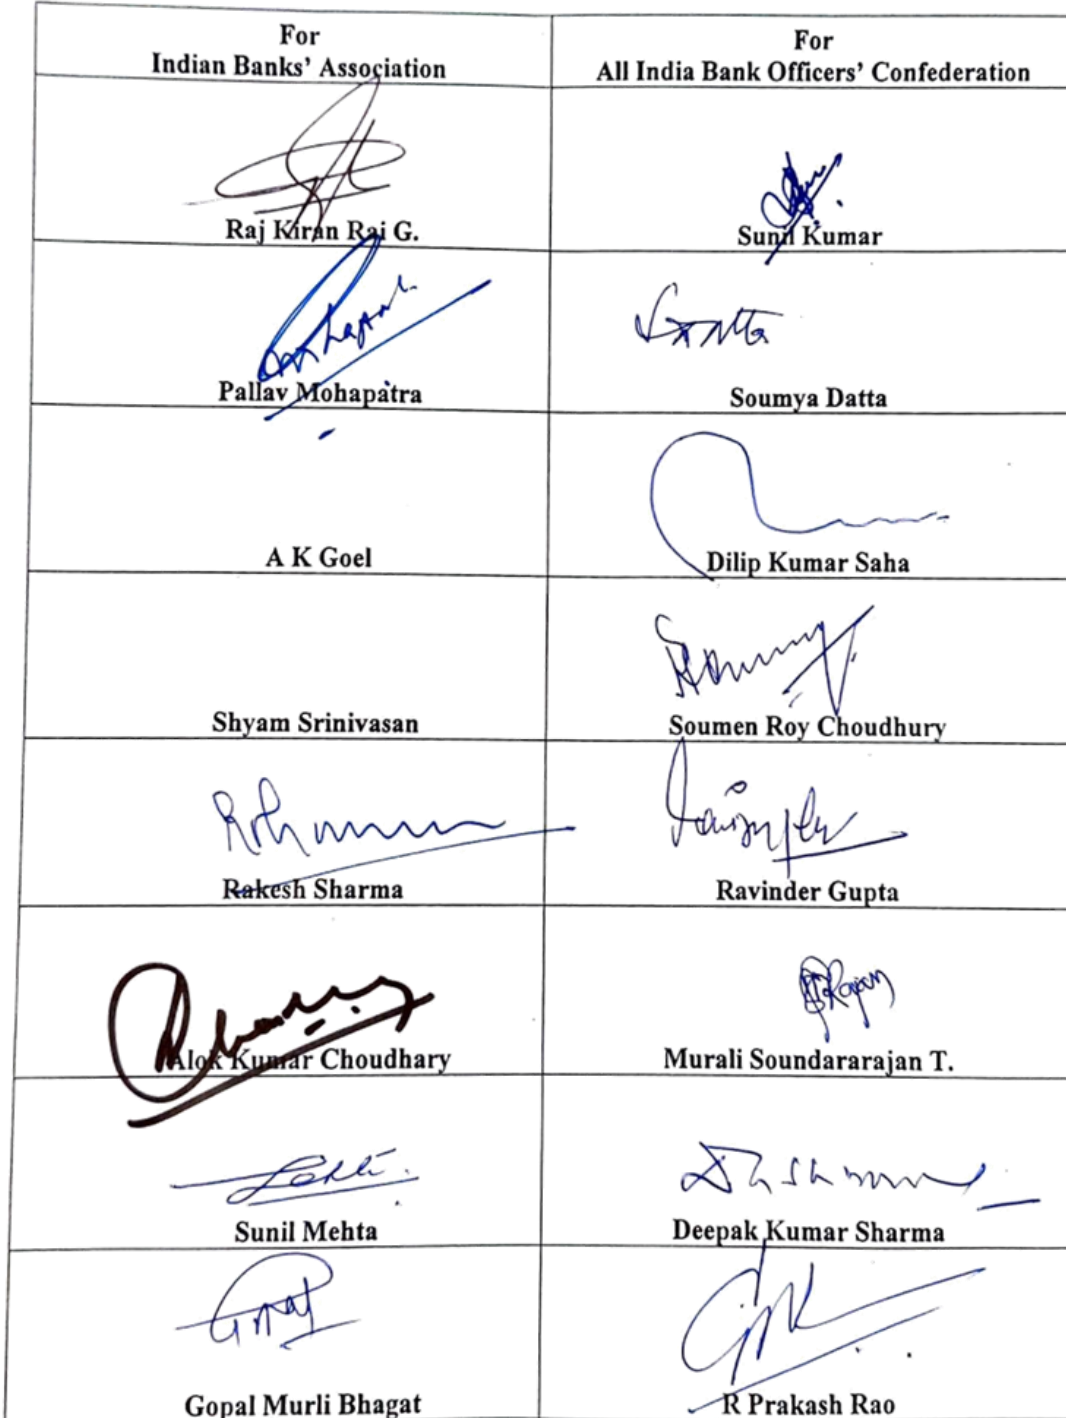 For
Indian Banks' Association
For
All India Bank Officers' Confederation
Raj Kiran Rai G.
Sunil Kumar
Pallav Mohapatra
Soumya Datta
A K Goel
Dilip Kumar Saha
Shyam Srinivasan
Soumen Roy Choudhury
Rakesh Sharma
Ravinder Gupta
Alok Kumar Choudhary
Murali Soundararajan T.
Sunil Mehta
Deepak Kumar Sharma
Gopal Murli Bhagat
R Prakash Rao